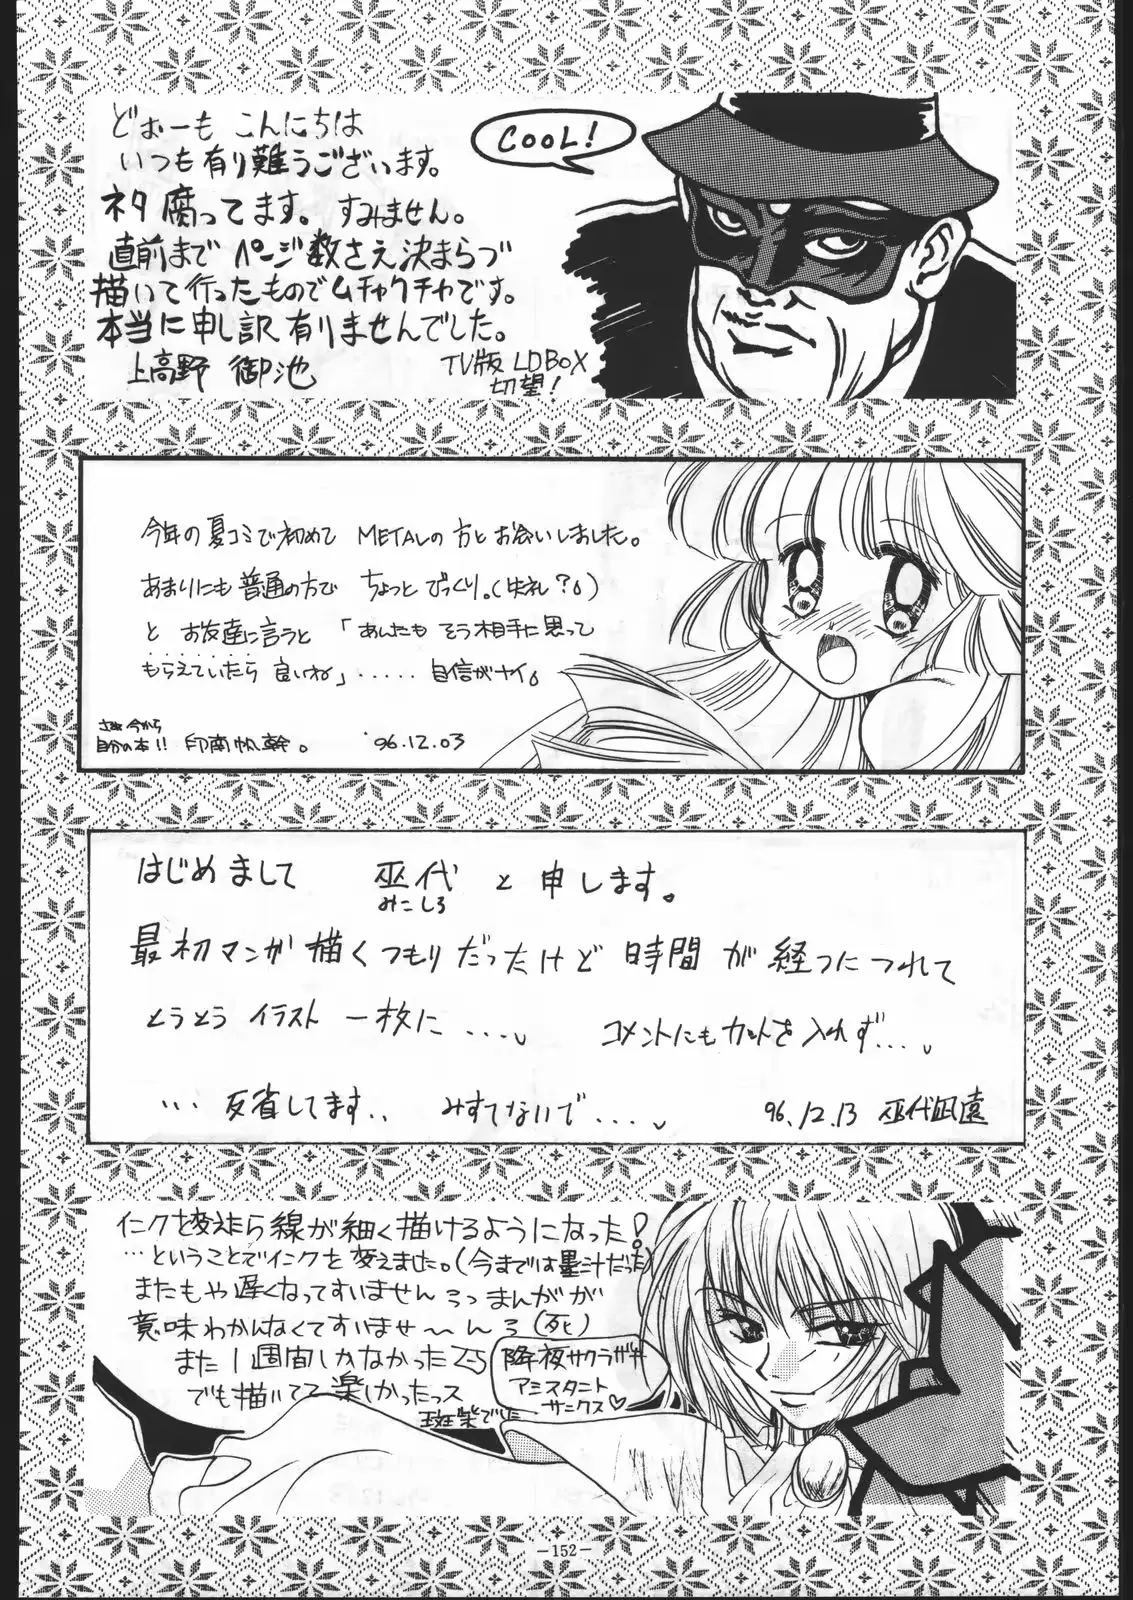 どぉーも こんにちは
いつも有り難うございます。
ネタ腐ってます。すみません。
直前までページ数さえ決まらづ
描いて行ったものでムチャクチャです。
本当に申し訳有りませんでした。
上高野 御池
TV版 LDBOX
切望!
COOL!
今年の夏コミで初めて METALの方とお会いしました。
あまりにも普通の方で ちょっとびっくり。(失礼?)
と お友達に言うと 「あんたも そう相手に思って
もらえていたら 良いね」‥‥‥ 自信がナイ。
さぁ 今から
自分の本!! 印南帆幹。 '96.12.03
はじめまして 巫代 と 申します。
みこしろ
最初マンガ描くつもりだったけど 時間が経つにつれて
とうとう イラスト 一枚に‥‥、 コメントにもカットを入れず‥‥、
‥‥ 反省してます‥ みすてないで‥‥、 96.12.13 巫代凪遠
インクを変えたら線が細く描けるようになった!
‥ということでインクを変えました。(今までは墨汁だった)
またもや遅くなってすいませんろっまんがが
意味わかんなくてすいませ〜んろ(死)
また1週間しかなかった
でも描いてて楽しかったっス
降夜サクラザキ
アシスタント
サンクス♡
でした
—152—